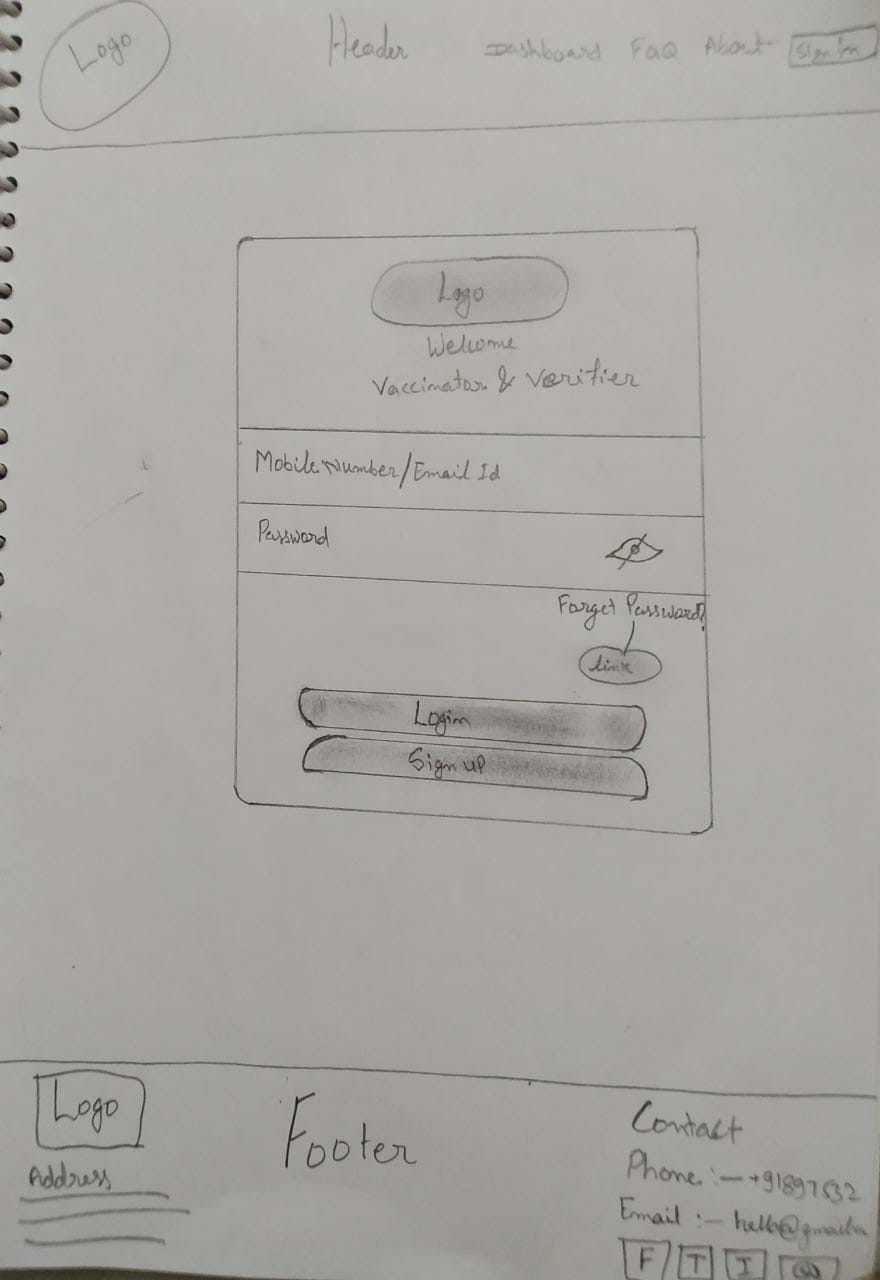 Logo
Header
Dashboard FaQ About Sign in
Logo
Welcome
Vaccinator & Verifier
Mobile Number/Email Id
Password
Forget Password?
link
Login
Sign up
Logo
Address
Footer
Contact
Phone :- +91897532
Email :-
F T I